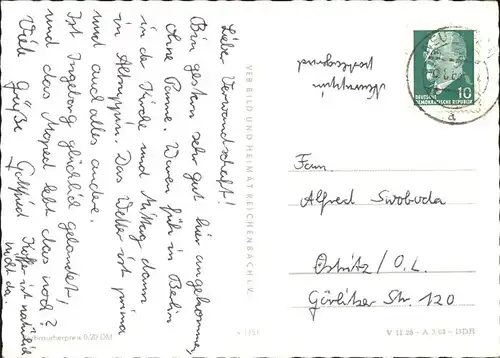 Liebe Verwandschaft!
Bin gestern sehr gut hier angekommen,
Ohne Panne. Waren früh in Berlin
in der Kirche und Mittag dann
in Altruppin. Das Wetter ist prima
und auch alles andere.
Ist Ingeborg glücklich gelandet,
und das Moped lebt das noch?
Viele Grüße Gottfried
Koffer ist natürlich
nicht da.
VEB BILD UND HEIMAT REICHENBACH I. V.
DEUTSCHE
DEMOKRATISCHE REPUBLIK
10
a
Fam.
Alfred Swoboda
Ostritz / O.L.
Görlitzer Str. 120
Verbraucherpreis 0,20 DM
V 11 28 - A 3/63 - DDR